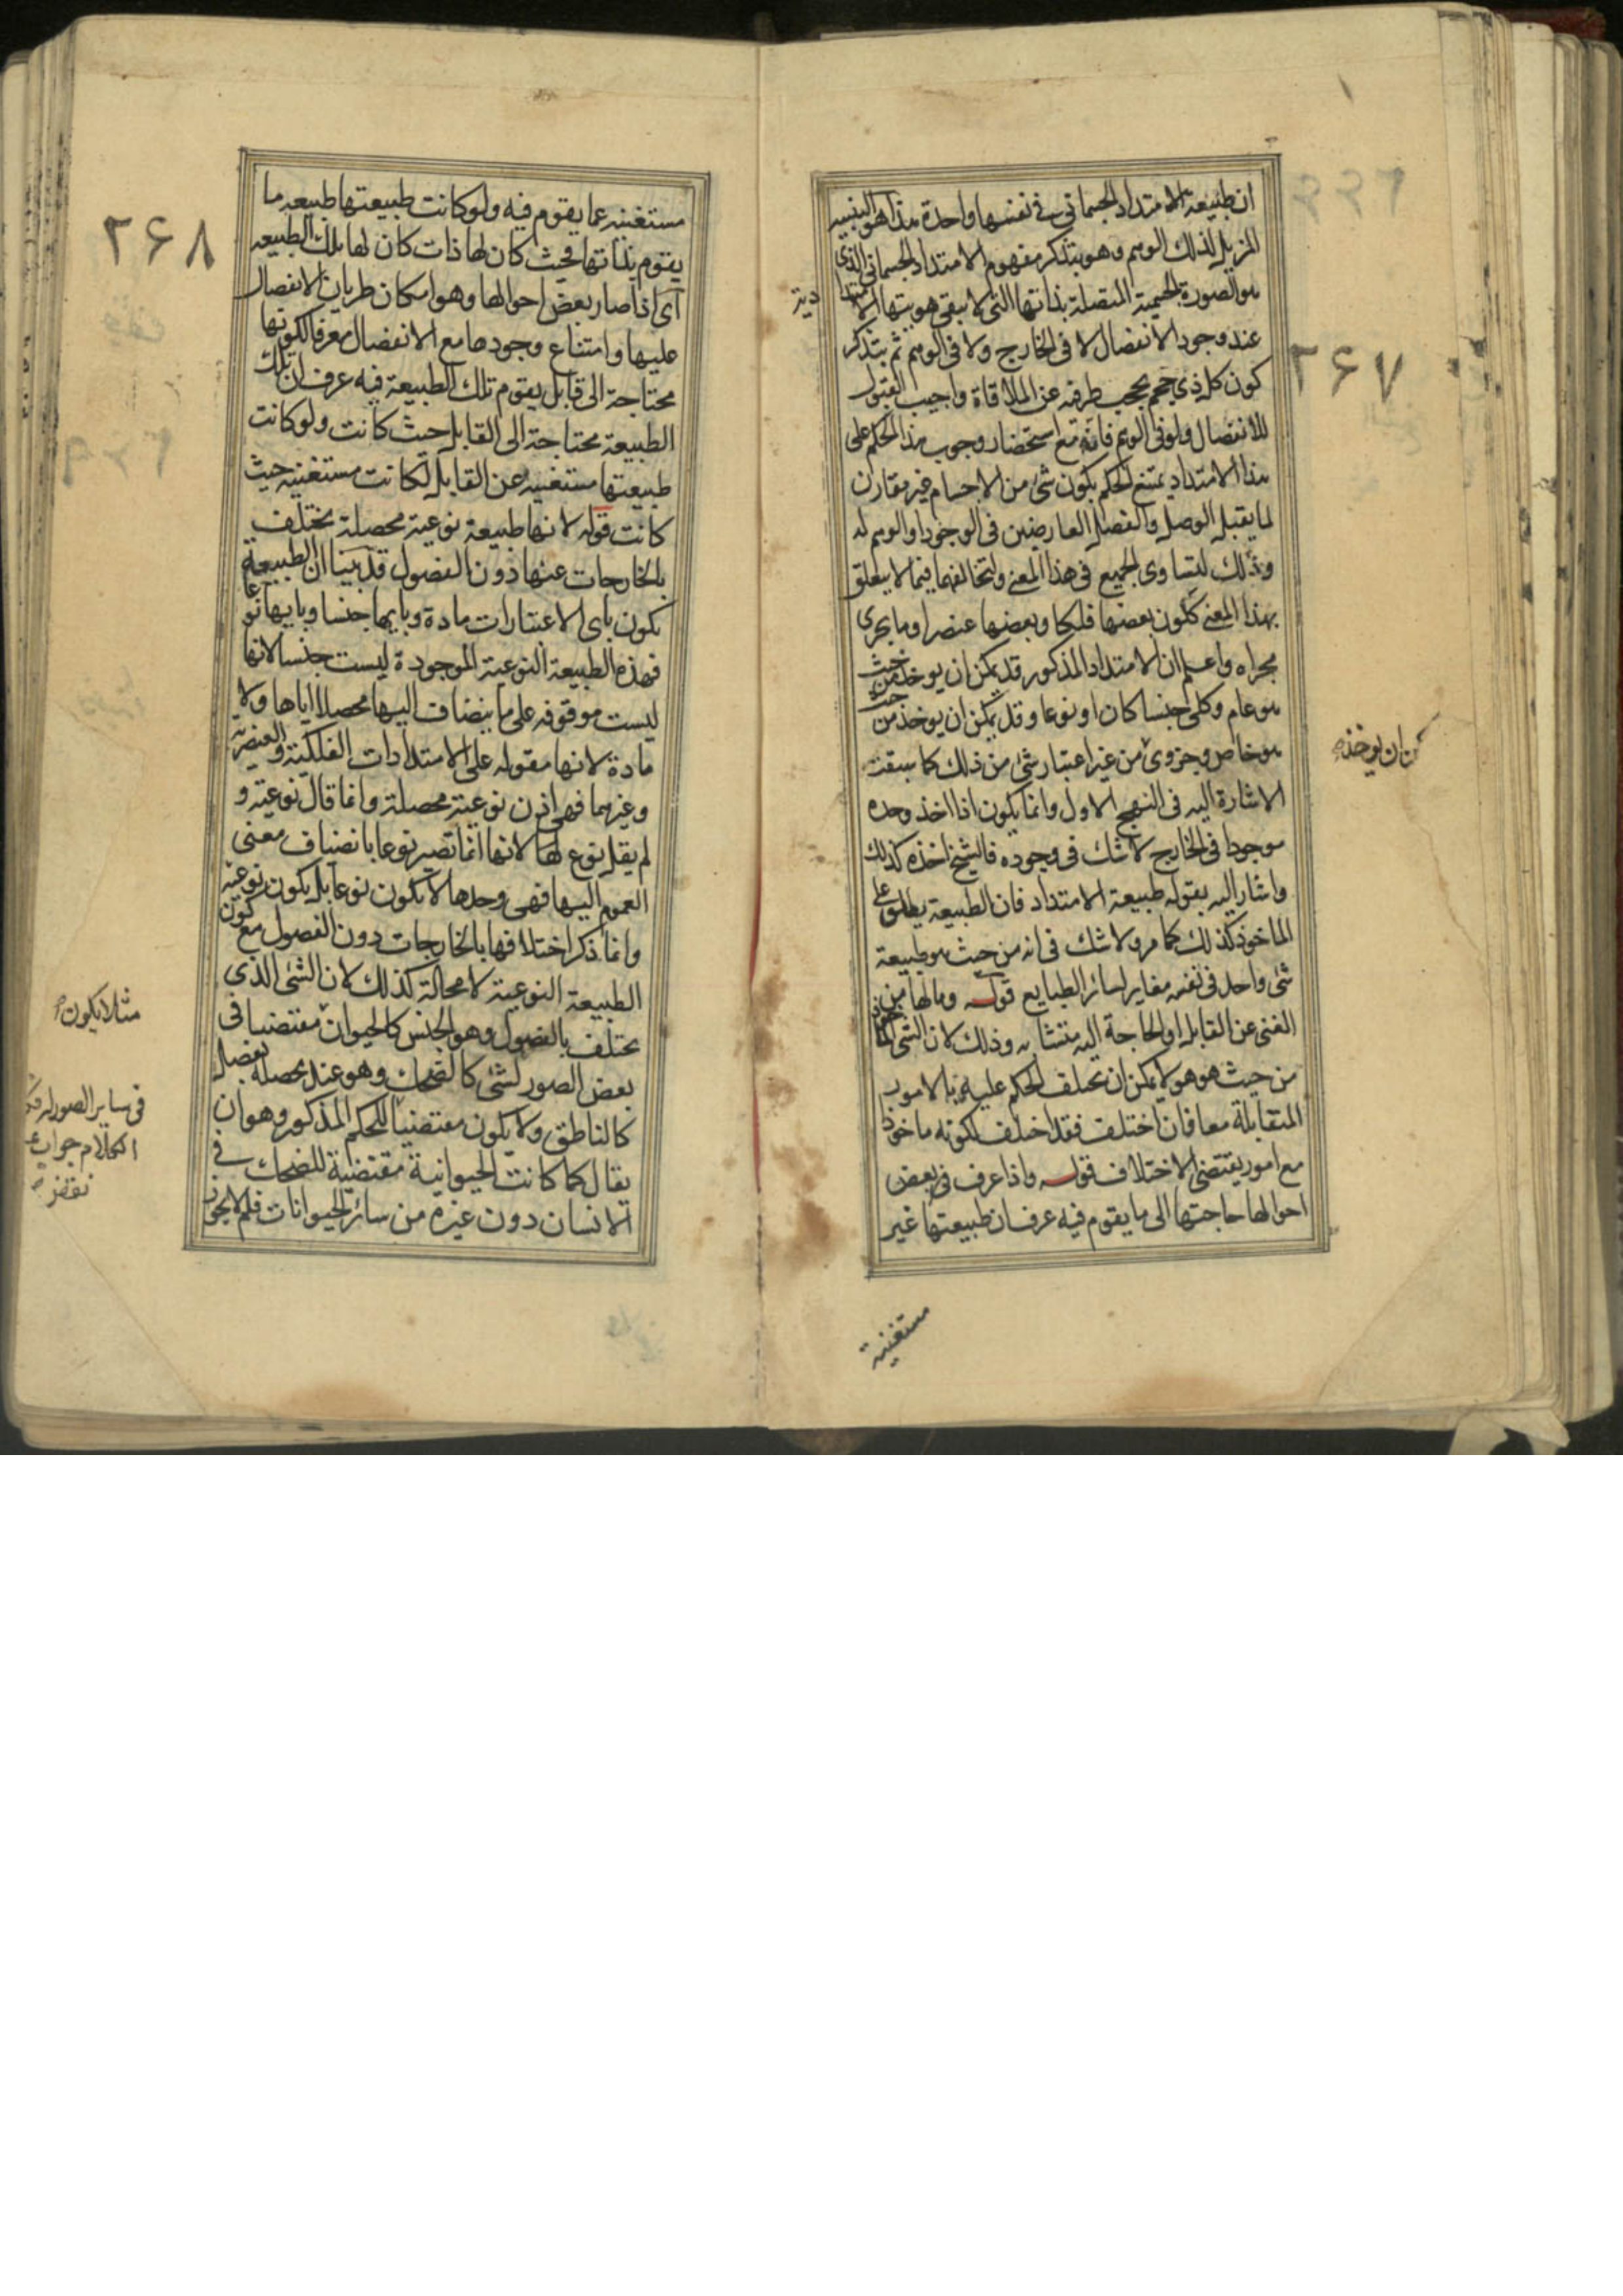 ان طبيعة الامتداد الجسماني في نفسها واحدة هذا هو التنبيه
المزيل لذلك الوهم وهو بتذكر مفهوم الامتداد الجسماني الذي
هو الصورة الجسمية المتصلة بذاتها التي لا يبقى هويتها الامتدا
دية
عند وجود الانفصال لا في الخارج ولا في الوهم ثم بتذكر
كون كل ذي حجم يحجب طرفه عن الملاقاة واجب القبول
للانفصال ولو في الوهم فانه مع استحضار وجوب هذا الحكم على
هذا الامتداد يمتنع الحكم بكون شئ من الاجسام غير مقارن
لما يقبل الوصل والفصل العارضين في الوجود او الوهم له
وذلك لتساوى الجميع في هذا المعنى ولتخالفهما فيما لا يتعلق
بهذا المعنى ككون بعضها فلكيا وبعضها عنصريا وما يجرى
مجراه واعلم ان الامتداد المذكور قد يمكن ان يوخذ من حيث
هو عام وكلى جنسا كان او نوعا وقد يمكن ان يوخذ من حيث
هو خاص وجزوى من غير اعتبار شئ من ذلك كما سبقت
كن ان يوخذ
الاشارة اليه في النهج الاول وانما يكون اذا اخذ وحده
موجودا في الخارج لا شك في وجوده فالشيخ اخذه كذلك
واشار اليه بقوله طبيعة الامتداد فان الطبيعة يطلق على
الماخوذ كذلك كما مر ولا شك في انه من حيث هو طبيعة
شئ واحد في نفسه مغاير لسائر الطبايع قوله وما لها من
الغنى عن القابل او الحاجة اليه متشابه وذلك لان الشى الماخوذ
من حيث هو هو لا يمكن ان يختلف الحكم عليه بالامور
المتقابلة معا فان اختلف فقد اختلف لكونه ماخوذا
مع امور يقتضى الاختلاف قوله واذا عرف في بعض
احوالها حاجتها الى ما يقوم فيه عرف ان طبيعتها غير
مستغنية
٢۶٧
٢۶٨
مستغنيه عما يقوم فيه ولو كانت طبيعتها طبيعه ما
يقوم بذاتها فحيث كان لها ذات كان لها تلك الطبيعه
اى اذا صار بعض احوالها وهو امكان طريان الانفصال
عليها وامتناع وجودها مع الانفصال معرفا لكونها
محتاجة الى قابل يقوم تلك الطبيعة فيه عرف ان تلك
الطبيعة محتاجة الى القابل حيث كانت ولو كانت
طبيعتها مستغنيه عن القابل لكانت مستغنيه حيث
كانت قوله لانها طبيعة نوعية محصلة يختلف
بالخارجات عنها دون الفصول قد بينا ان الطبيعة
يكون باى الاعتبارات مادة وبايها جنسا وبايها نوعا
فهذه الطبيعة النوعية الموجودة ليست جنسا لانها
ليست موقوفه على ما ينضاف اليها محصلا اياها ولا
مادة لانها مقوله على الامتدادات الفلكية والعنصرية
وغيرهما فهى اذن نوعية محصلة وانما قال نوعية و
لم يقل نوع لها لانها انما تصير نوعا بانضياف معنى
العموم اليها فهى وحدها لا يكون نوعا بل يكون نوعية
وانما ذكر اختلافها بالخارجات دون الفصول مع كون
الطبيعة النوعية لا محالة كذلك لان الشئ الذى
يختلف بالفصول وهو الجنس كالحيوان مقتضيا في
مثلا يكون
بعض الصور لشئ كالضحك وهو عند تحصله بفصل
كالناطق ولا يكون مقتضيا للحكم المذكور وهو ان
في ساير الصور
الكلام جواب
نقض
يقال كما كانت الحيوانية مقتضية للضحك في
الانسان دون غيره من سائر الحيوانات فلم لا يجوز